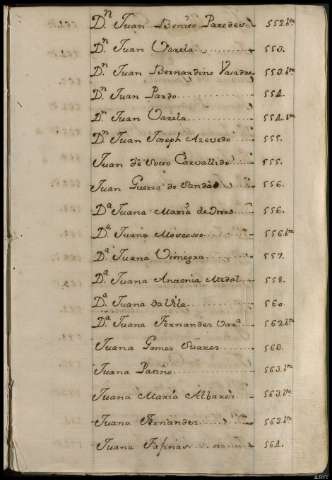 Dn Juan Benito Paredes 552 bta
Dn Juan Varela 553.
Dn Juan Bernardino Varadas 553 bta
Dn Juan Pardo 554.
Dn Juan Varela 554 bta
Dn Juan Joseph Azevedo 555.
Juan de Souto Carvallido 555.
Juan de Sandàs 556.
Da Juana Maria de 556.
Da Juana Moscoso 556 bta
Da Juana 557.
Da Juana Antonia 558.
Da Juana da Vila 560.
Da Juana Fernandez 562 bta
Juana Gomez Suarez 563.
Juana Patiño 563 bta
Juana Maria Albarez 563 bta
Juana Fernandez 563 bta
Juana Fariñas 564.